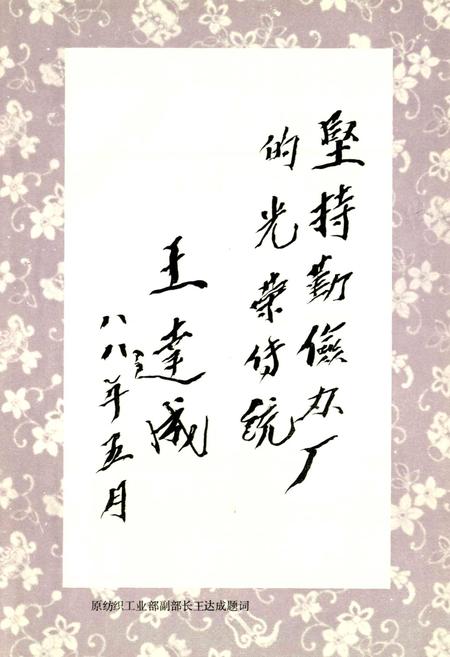 堅持勤儉办厂
的光荣传統
王達成
八八年五月
原纺织工业部副部长王达成题词